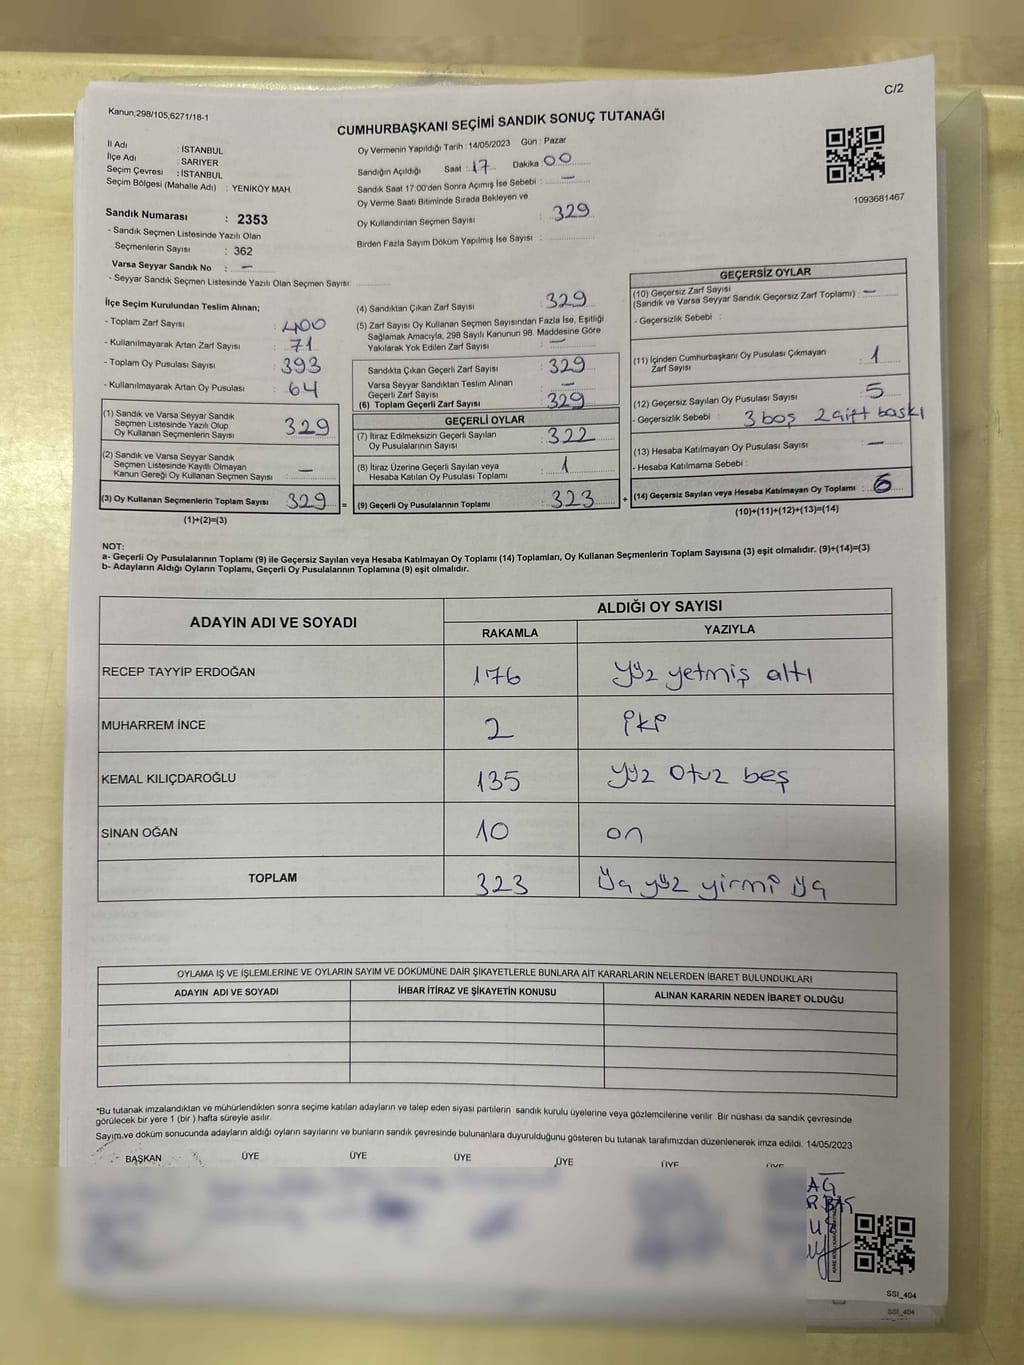 C/2
Kanun;298/105,6271/18-1
CUMHURBAŞKANI SEÇİMİ SANDIK SONUÇ TUTANAĞI
İl Adı : İSTANBUL
İlçe Adı : SARIYER
Seçim Çevresi : İSTANBUL
Seçim Bölgesi (Mahalle Adı) : YENİKÖY MAH.
Sandık Numarası : 2353
- Sandık Seçmen Listesinde Yazılı Olan
Seçmenlerin Sayısı : 362
Varsa Seyyar Sandık No : —
- Seyyar Sandık Seçmen Listesinde Yazılı Olan Seçmen Sayısı:
Oy Vermenin Yapıldığı Tarih : 14/05/2023 Gün : Pazar
Sandığın Açıldığı Saat : 17 Dakika : 00
Sandık Saat 17:00'den Sonra Açımış İse Sebebi : —
Oy Verme Saati Bitiminde Sırada Bekleyen ve
Oy Kullandırılan Seçmen Sayısı : 329
Birden Fazla Sayım Döküm Yapılmış İse Sayısı :
1093681467
İlçe Seçim Kurulundan Teslim Alınan;
- Toplam Zarf Sayısı : 400
- Kullanılmayarak Artan Zarf Sayısı : 71
- Toplam Oy Pusulası Sayısı : 393
- Kullanılmayarak Artan Oy Pusulası : 64
(1) Sandık ve Varsa Seyyar Sandık
Seçmen Listesinde Yazılı Olup
Oy Kullanan Seçmenlerin Sayısı : 329
(2) Sandık ve Varsa Seyyar Sandık
Seçmen Listesinde Kayıtlı Olmayan
Kanun Gereği Oy Kullanan Seçmen Sayısı : —
(3) Oy Kullanan Seçmenlerin Toplam Sayısı : 329 =
(1)+(2)=(3)
(4) Sandıktan Çıkan Zarf Sayısı : 329
(5) Zarf Sayısı Oy Kullanan Seçmen Sayısından Fazla İse, Eşitliği
Sağlamak Amacıyla, 298 Sayılı Kanunun 98. Maddesine Göre
Yakılarak Yok Edilen Zarf Sayısı : —
Sandıkta Çıkan Geçerli Zarf Sayısı : 329
Varsa Seyyar Sandıktan Teslim Alınan
Geçerli Zarf Sayısı : —
(6) Toplam Geçerli Zarf Sayısı : 329
GEÇERLİ OYLAR
(7) İtiraz Edilmeksizin Geçerli Sayılan
Oy Pusulalarının Sayısı : 322
(8) İtiraz Üzerine Geçerli Sayılan veya
Hesaba Katılan Oy Pusulası Toplamı : 1
(9) Geçerli Oy Pusulalarının Toplamı : 323 +
GEÇERSİZ OYLAR
(10) Geçersiz Zarf Sayısı
(Sandık ve Varsa Seyyar Sandık Geçersiz Zarf Toplamı) : —
- Geçersizlik Sebebi :
(11) İçinden Cumhurbaşkanı Oy Pusulası Çıkmayan
Zarf Sayısı : 1
(12) Geçersiz Sayılan Oy Pusulası Sayısı : 5
- Geçersizlik Sebebi : 3 boş 2 çift baskı
(13) Hesaba Katılmayan Oy Pusulası Sayısı : —
- Hesaba Katılmama Sebebi :
(14) Geçersiz Sayılan veya Hesaba Katılmayan Oy Toplamı : 6
(10)+(11)+(12)+(13)=(14)
NOT:
a- Geçerli Oy Pusulalarının Toplamı (9) ile Geçersiz Sayılan veya Hesaba Katılmayan Oy Toplamı (14) Toplamları, Oy Kullanan Seçmenlerin Toplam Sayısına (3) eşit olmalıdır. (9)+(14)=(3)
b- Adayların Aldığı Oyların Toplamı, Geçerli Oy Pusulalarının Toplamına (9) eşit olmalıdır.
ADAYIN ADI VE SOYADI ALDIĞI OY SAYISI
RAKAMLA YAZIYLA
RECEP TAYYİP ERDOĞAN 176 yüz yetmiş altı
MUHARREM İNCE 2 iki
KEMAL KILIÇDAROĞLU 135 yüz otuz beş
SİNAN OĞAN 10 on
TOPLAM 323 üç yüz yirmi üç
OYLAMA İŞ VE İŞLEMLERİNE VE OYLARIN SAYIM VE DÖKÜMÜNE DAİR ŞİKAYETLERLE BUNLARA AİT KARARLARIN NELERDEN İBARET BULUNDUKLARI
ADAYIN ADI VE SOYADI İHBAR İTİRAZ VE ŞİKAYETİN KONUSU ALINAN KARARIN NEDEN İBARET OLDUĞU
*Bu tutanak imzalandıktan ve mühürlendikten sonra seçime katılan adayların ve talep eden siyasi partilerin sandık kurulu üyelerine veya gözlemcilerine verilir. Bir nüshası da sandık çevresinde
görülecek bir yere 1 (bir ) hafta süreyle asılır.
Sayım ve döküm sonucunda adayların aldığı oyların sayılarını ve bunların sandık çevresinde bulunanlara duyurulduğunu gösteren bu tutanak tarafımızdan düzenlenerek imza edildi. 14/05/2023
BAŞKAN ÜYE ÜYE ÜYE ÜYE ÜYE ÜYE
SSI_404
SSI_404